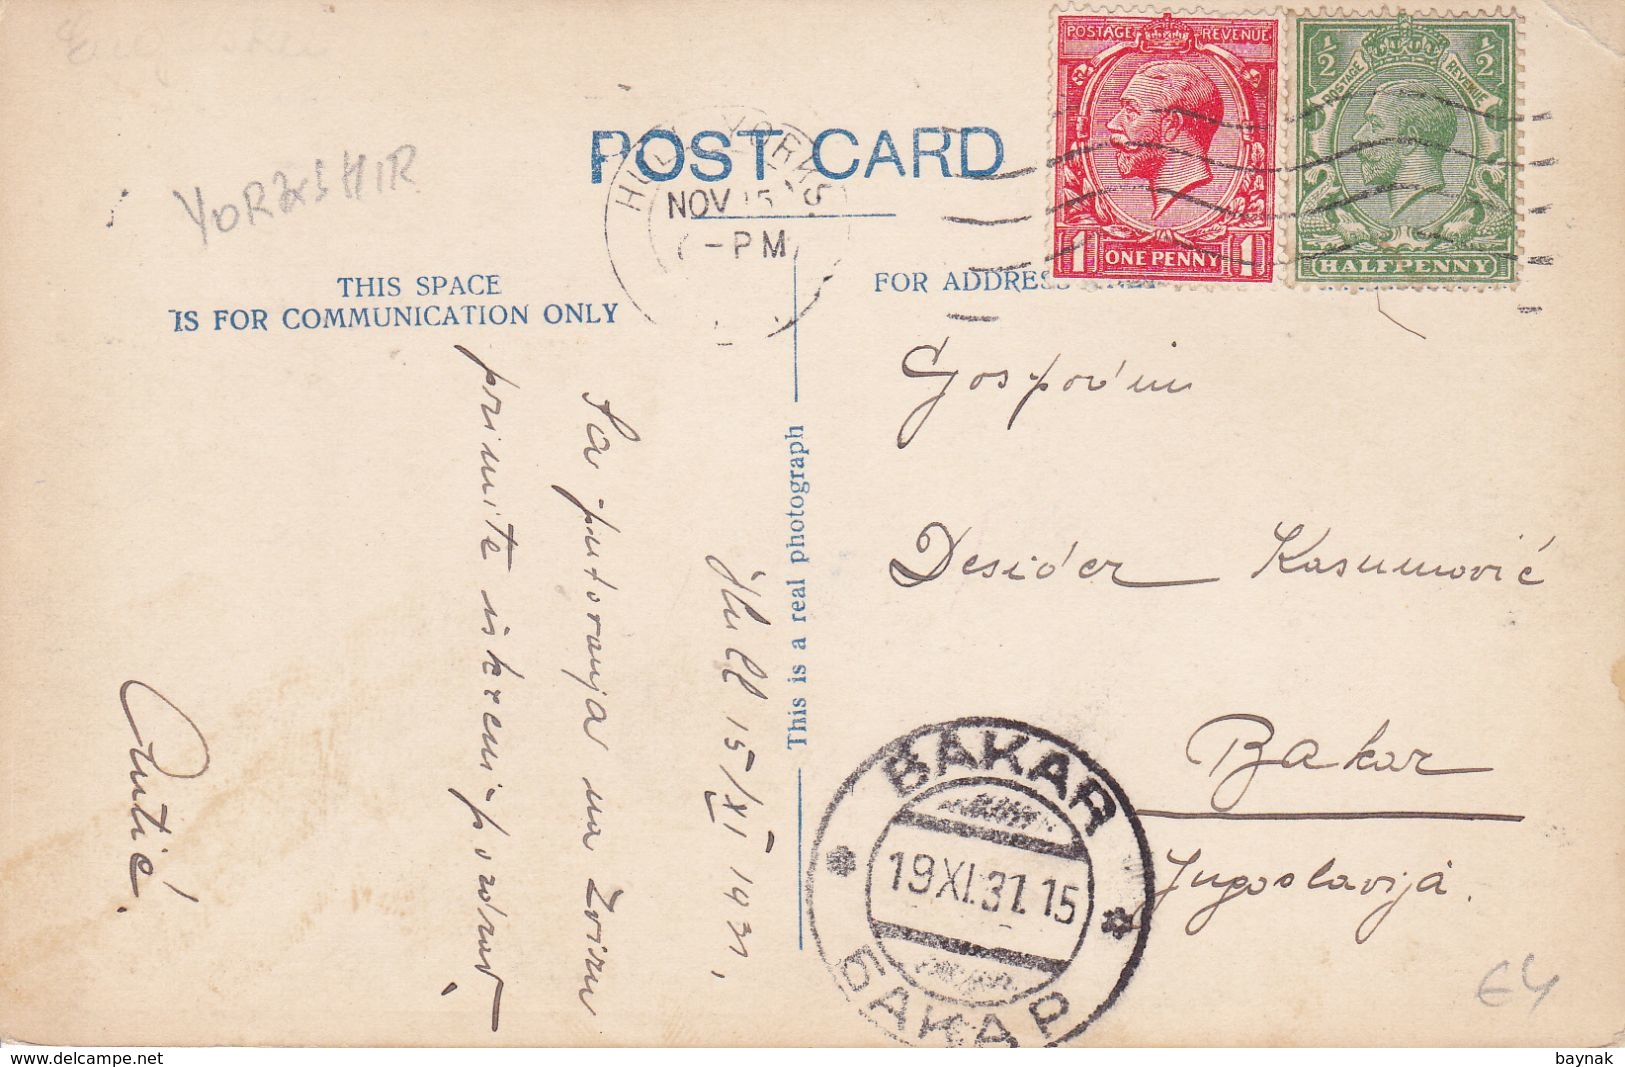 POST CARD
YORKSHIR
THIS SPACE
IS FOR COMMUNICATION ONLY
FOR ADDRESS
HULL YORKS
NOV 15
-PM
POSTAGE REVENUE
1 ONE PENNY 1
½ POSTAGE REVENUE ½
HALFPENNY
Hull 15/XI 1931.
Sa putovanja na
primite iskreni pozdrav,
Antić.
This is a real photograph
Gospodin
Desider Kasumović
Bakar
Jugoslavija.
BAKAR
19 XI. 31. 15
БАКАР
€4
delcampe.net
baynak